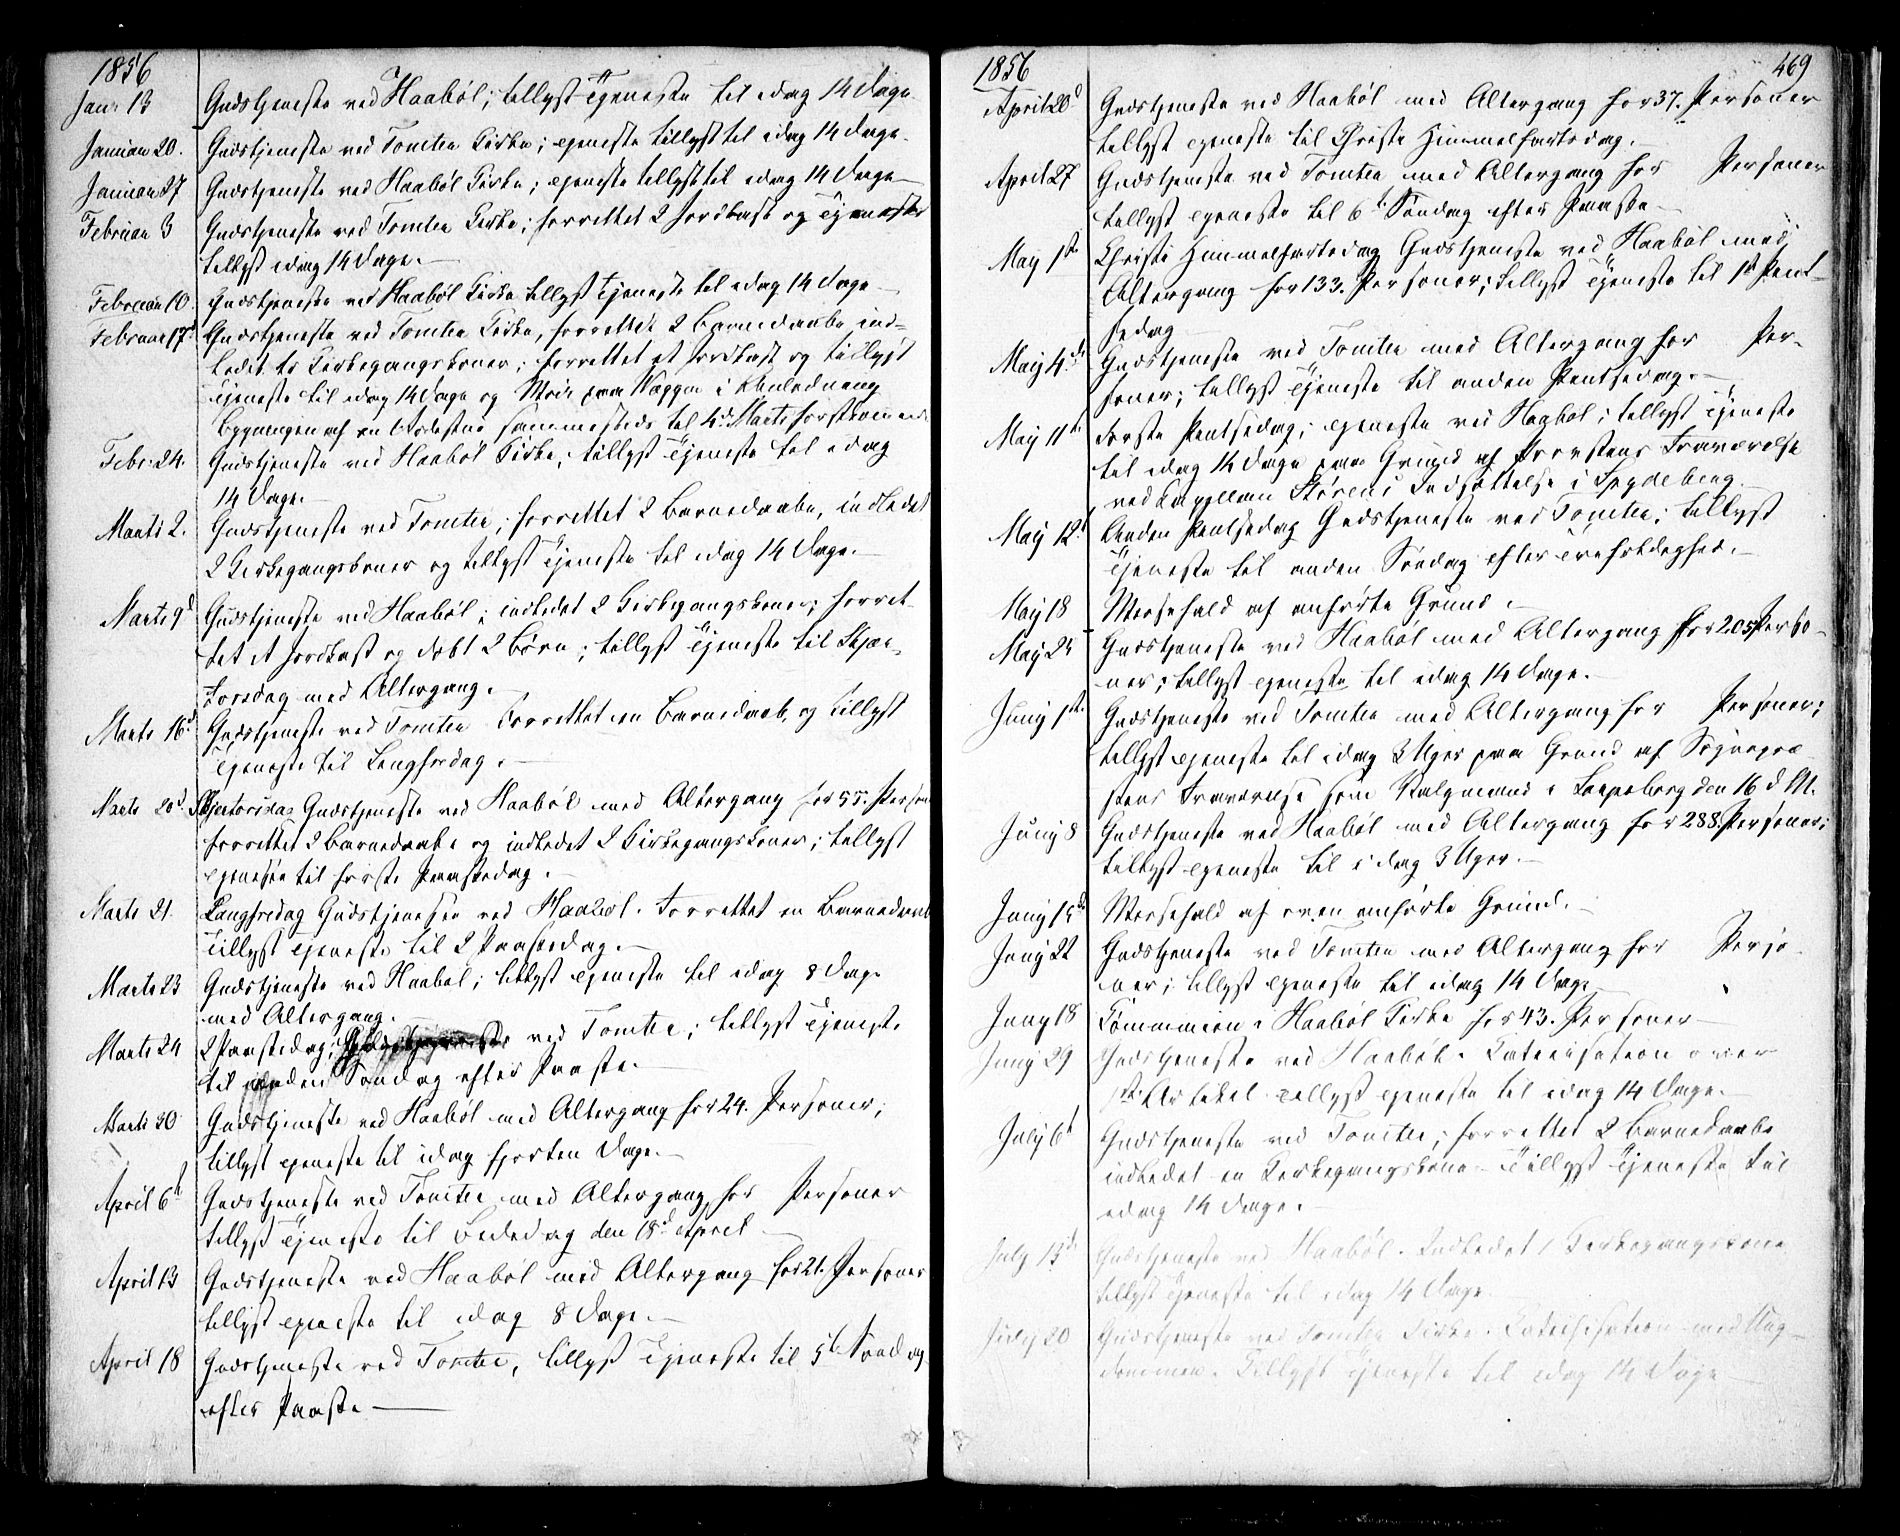 1856
Janr 13 Gudstjeneste ved Haabøl; tillyst Tjeneste til idag 14 Dage
Januar 20. Gudstjeneste ved Tomter Kirke; Tjeneste tillyst til idag 14 Dage.
Januar 27 Gudstjeneste ved Haabøl Kirke; Tjeneste tillyst til idag 14 Dage
Februar 3 Gudstjeneste ved Tomter Kirke; forrettet 2 Jordkast og Tjeneste
tillyst idag 14 Dage.
Februar 10. Gudstjeneste ved Haabøl Kirke tillyst Tjeneste til idag 14 Dage
Februar 17d Gudstjeneste ved Tomter Kirke, forrettet 2 Barnedaabe, ind-
ledet to Kirkegangskoner; forrettet et Jordkast og tillyst
Tjeneste til idag 14 Dage og Møde paa i Anledning
Bygningen af en sammesteds til 4d Marts førstkommende
Febr. 24. Gudstjeneste ved Haabøl Kirke; tillyst Tjeneste til idag
14 Dage.
Marts 2. Gudstjeneste ved Tomter; forrettet 2 Barnedaabe, indledet
2 Kirkegangskoner og tillyst Tjeneste til idag 14 Dage.
Marts 9d Gudstjeneste ved Haabøl; indledet 2 Kirkegangskoner; forret-
tet et Jordkast og døbt 2 Børn; tillyst Tjeneste til Skjær-
torsdag med Altergang.
Marts 16d Gudstjeneste ved Tomter forrettet en Barnedaab, og tillyst
Tjeneste til Langfredag.
Marts 20d. Skjertorsdag Gudstjeneste ved Haabøl med Altergang for 55. Person
forrettet 2 Barnedaabe og indledet 2 Kirkegangskoner; tillyst
Tjeneste til første Paaskedag.
Marts 21. Langfredag Gudstjenesten ved Haabøl. Forrettet en Barnedaab
Tillyst Tjeneste til 2 Paaskedag.
Marts 23 Gudstjeneste ved Haabøl; tillyst Tjeneste til idag 8 Dage
med Altergang.
Marts 24 2 Paaskedag; Gudstjeneste ved Tomter; tillyst Tjeneste
til anden Søndag efter Paaske.
Marts 30 Gudstjeneste ved Haabøl med Altergang for 24. Personer;
tillyst Tjeneste til idag fjorten Dage.
April 6t Gudstjeneste ved Tomter med Altergang for Personer
tillyst Tjeneste til Bededag den 18d April
April 13 Gudstjeneste ved Haabøl med Altergang for 21. Personer
tillyst Tjeneste til idag 8 Dage.
April 18 Gudstjeneste ved Tomter, tillyst Tjeneste til 5t Søndag
efter Paaske
1856 469
April 20d Gudstjeneste ved Haabøl med Altergang for 37. Personer
tillyst Tjeneste til Christi Himmelfartsdag.
April 27 Gudstjeneste ved Tomter med Altergang for Personer
tillyst Tjeneste til 6t Søndag efter Paaske
May 1st Christi Himmelfartsdag Gudstjeneste ved Haabøl med
Altergang for 133. Personer; tillyst Tjeneste til 1st Pint-
sedag
May 4de Gudstjeneste ved Tomter med Altergang for Per-
soner; tillyst Tjeneste til anden Pintsedag.
May 11t Første Pintsedag; Tjeneste ved Haabøl; tillyst Tjeneste
til idag 14 Dage paa Grund af Provstens Fraværelse
ved Kapellan Størens Indsættelse i Spydeberg
May 12t Anden Pintsedag Gudstjeneste ved Tomter; tillyst
Tjeneste til anden Søndag efter Trefoldighed.
May 18 Messefald af anførte Grund.
May 25 Gudstjeneste ved Haabøl med Altergang for 205 Perso-
ner; tillyst Tjeneste til idag 14 Dage.
Juny 1st Gudstjeneste ved Tomter med Altergang for Personer;
tillyst Tjeneste til idag 3 Uger paa Grund af Sognepræ
stens Fraværelse som Valgmand i Sarpsborg den 16 d M.
Juny 8 Gudstjeneste ved Haabøl med Altergang for 288. Personer;
tillyst Tjeneste til idag 3 Uger.
Juny 15de Messefald af oven anførte Grund.
Juny 22 Gudstjeneste ved Tomter med Altergang for Perso
ner; tillyst Tjeneste til idag 14 Dage
Juny 18 i Haabøl Kirke for 43. Personer
Juny 29 Gudstjeneste ved Haabøl. Catechisation over
1st Artikel tillyst Tjeneste til idag 14 Dage.
July 6t Gudstjeneste ved Tomter; forrettet 2 Barnedaabe
indledet en Kirkegangskone Tillyst Tjeneste til
idag 14 Dage.
July 13de Gudstjeneste ved Haabøl. Indledet 1 Kirkegangskone
tillyst Tjeneste til idag 14 Dage.
July 20 Gudstjeneste ved Tomter Kirke. Catechisation med Ung-
dommen. Tillyst Tjeneste til idag 14 Dage